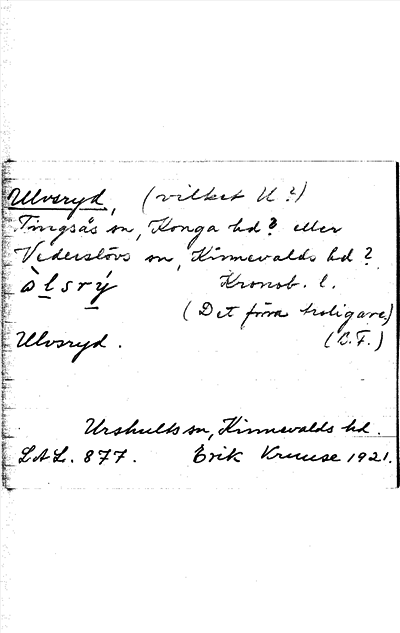 Ulvsryd, (vilket U?)
Tingsås sn, Konga hd? eller
Vederslövs sn, Kinnevalds hd?
å̀lsrý Kronob. l.
(Det förra troligare)
Ulvsryd. (C.F.)
Urshults sn, Kinnevalds hd.
LAL. 877. Erik Kruuse 1921.